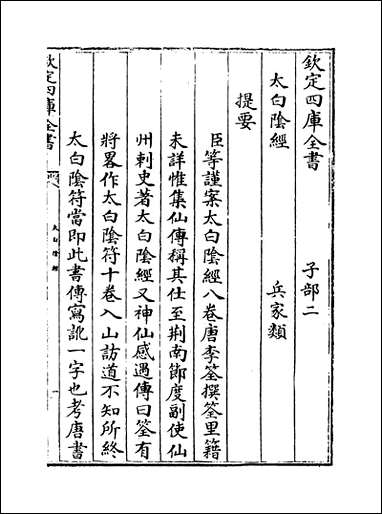 欽定四庫全書　子部二
太白陰經　兵家類
提要
臣等謹案太白陰經八卷唐李筌撰筌里籍
未詳惟集仙傳稱其仕至荆南節度副使仙
州刺史著太白陰經又神仙感遇傳曰筌有
將畧作太白陰符十卷入山訪道不知所終
太白陰符當即此書傳寫訛一字也考唐書
欽定四庫全書
太白陰經
一